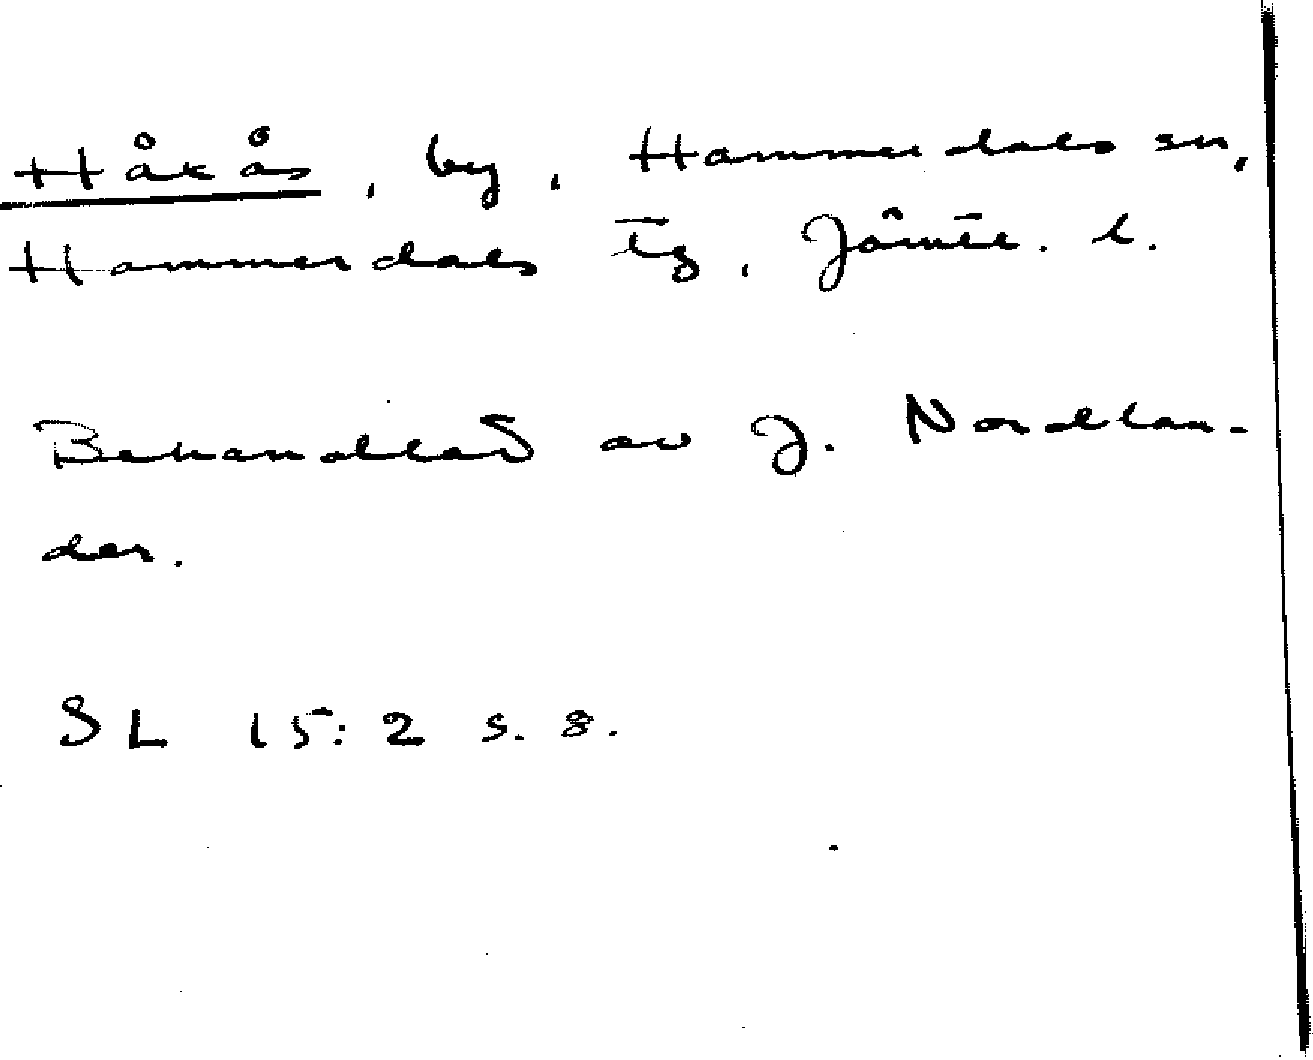 Håkås, by, Hammerdals sn,
Hammerdals tg, Jämtl. l.
Behandlad av J. Nordlan-
der.
SL 15:2 s. 8.